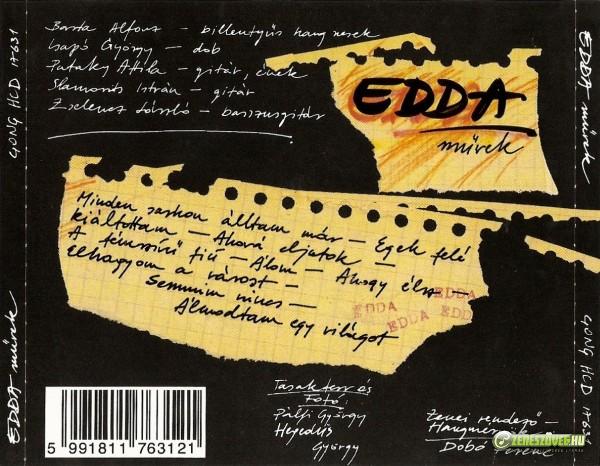 Barta Alfonz - billentyűs hangszerek
Csapó György - dob
Pataky Attila - gitár, ének
Slamovits István - gitár
Zselencz László - basszusgitár
EDDA
művek
Minden sarkon álltam már - Egek felé
kiáltottam - Ahová eljutok -
A fémszívű fiú - Álom - Ahogy élsz
Elhagyom a várost -
Semmim nincs -
Álmodtam egy világot
EDDA
EDDA EDD
5 991811 763121
Tasakterv és
Fotó:
Pálfi György
Hegedűs
György
Zenei rendező -
Dobó Ferenc
ZENESZÖVEG.HU
EDDA művek
GONG HCD 17631
EDDA művek
GONG HCD 17631